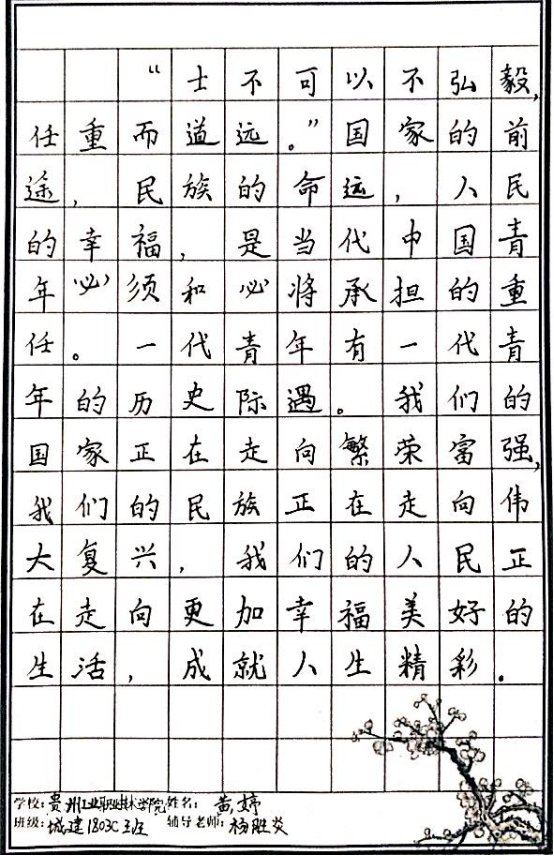 “士不可以不弘毅,
任重而道远。”国家的前
途,民族的命运,人民
的幸福,是当代中国青
年必须和必将承担的重
任。一代青年有一代青
年的历史际遇。我们的
国家正在走向繁荣富强,
我们的民族正在走向伟
大复兴,我们的人民正
在走向更加幸福美好的
生活,成就人生精彩.
学校:贵州工业职业技术学院 姓名: 黄婷
班级:城建1803C班 辅导老师:杨胜炎